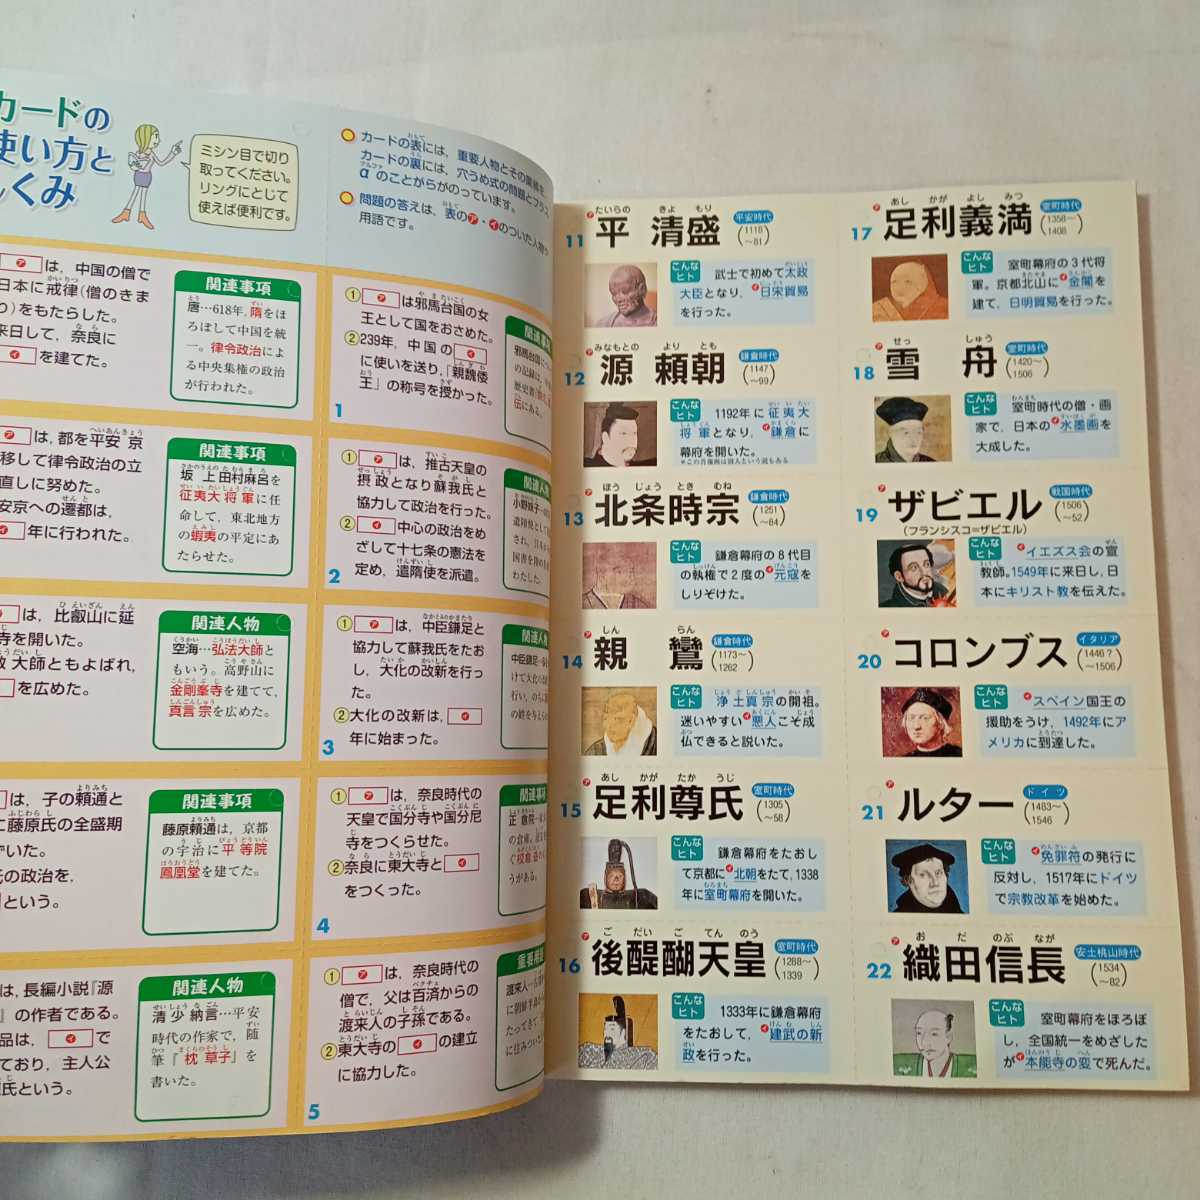 カードの
使い方と
しくみ
ミシン目で切り
取ってください。
リングにとじて
使えば便利です。
カードの表には，重要人物とその業績を
カードの裏には，穴うめ式の問題とプラス
αのことがらがのっています。
問題の答えは，表のア・イのついた人物や
用語です。
アは，中国の僧で
日本に戒律(僧のきま
り)をもたらした。
来日して，奈良に
イを建てた。
関連事項
唐…618年，隋をほ
ろぼして中国を統
一。律令政治によ
る中央集権の政治
が行われた。
①アは邪馬台国の女
王として国をおさめた。
②239年，中国のイ
に使いを送り，「親魏倭
王」の称号を授かった。
1
アは，都を平安京
移して律令政治の立
直しに努めた。
安京への遷都は，
イ年に行われた。
関連事項
坂上田村麻呂を
征夷大将軍に任
命して，東北地方
の蝦夷の平定にあ
たらせた。
①アは，推古天皇の
摂政となり蘇我氏と
協力して政治を行った。
②イ中心の政治をめ
ざして十七条の憲法を
定め，遣隋使を派遣。
2
は，比叡山に延
寺を開いた。
大師ともよばれ，
を広めた。
関連人物
空海…弘法大師と
もいう。高野山に
金剛峯寺を建てて，
真言宗を広めた。
①アは，中臣鎌足と
協力して蘇我氏をたお
し，大化の改新を行っ
た。
②大化の改新は，イ
年に始まった。
3
は，子の頼通と
に藤原氏の全盛期
いた。
の政治を，
という。
関連事項
藤原頼通は，京都
の宇治に平等院
鳳凰堂を建てた。
①アは，奈良時代の
天皇で国分寺や国分尼
寺をつくらせた。
②奈良に東大寺とイ
をつくった。
4
は，長編小説『源
』の作者である。
品は，イで
ており，主人公
氏という。
関連人物
清少納言…平安
時代の作家で，随
筆『枕草子』を
書いた。
①アは，奈良時代の
僧で，父は百済からの
渡来人の子孫である。
②東大寺のイの建立
に協力した。
5
11 平清盛 平安時代 (1118～81)
こんなヒト
武士で初めて太政
大臣となり，日宋貿易
を行った。
12 源頼朝 鎌倉時代 (1147～99)
こんなヒト
1192年に征夷大
将軍となり，鎌倉に
幕府を開いた。
※この肖像画は別人という説もある
13 北条時宗 鎌倉時代 (1251～84)
こんなヒト
鎌倉幕府の8代目
の執権で2度の元寇を
しりぞけた。
14 親鸞 鎌倉時代 (1173～1262)
こんなヒト
浄土真宗の開祖。
迷いやすい悪人こそ成
仏できると説いた。
15 足利尊氏 室町時代 (1305～58)
こんなヒト
鎌倉幕府をたおし
て京都に北朝をたて，1338
年に室町幕府を開いた。
16 後醍醐天皇 室町時代 (1288～1339)
こんなヒト
1333年に鎌倉幕府
をたおして，建武の新
政を行った。
17 足利義満 室町時代 (1358～1408)
こんなヒト
室町幕府の3代将
軍。京都北山に金閣を
建て，日明貿易を行った。
18 雪舟 室町時代 (1420～1506)
こんなヒト
室町時代の僧・画
家で，日本の水墨画を
大成した。
19 ザビエル 戦国時代 (1506～52)
(フランシスコ=ザビエル)
こんなヒト
イエズス会の宣
教師。1549年に来日し，日
本にキリスト教を伝えた。
20 コロンブス イタリア (1446?～1506)
こんなヒト
スペイン国王の
援助をうけ，1492年にア
メリカに到達した。
21 ルター ドイツ (1483～1546)
こんなヒト
免罪符の発行に
反対し，1517年にドイツ
で宗教改革を始めた。
22 織田信長 安土桃山時代 (1534～82)
こんなヒト
室町幕府をほろぼ
し，全国統一をめざした
が本能寺の変で死んだ。